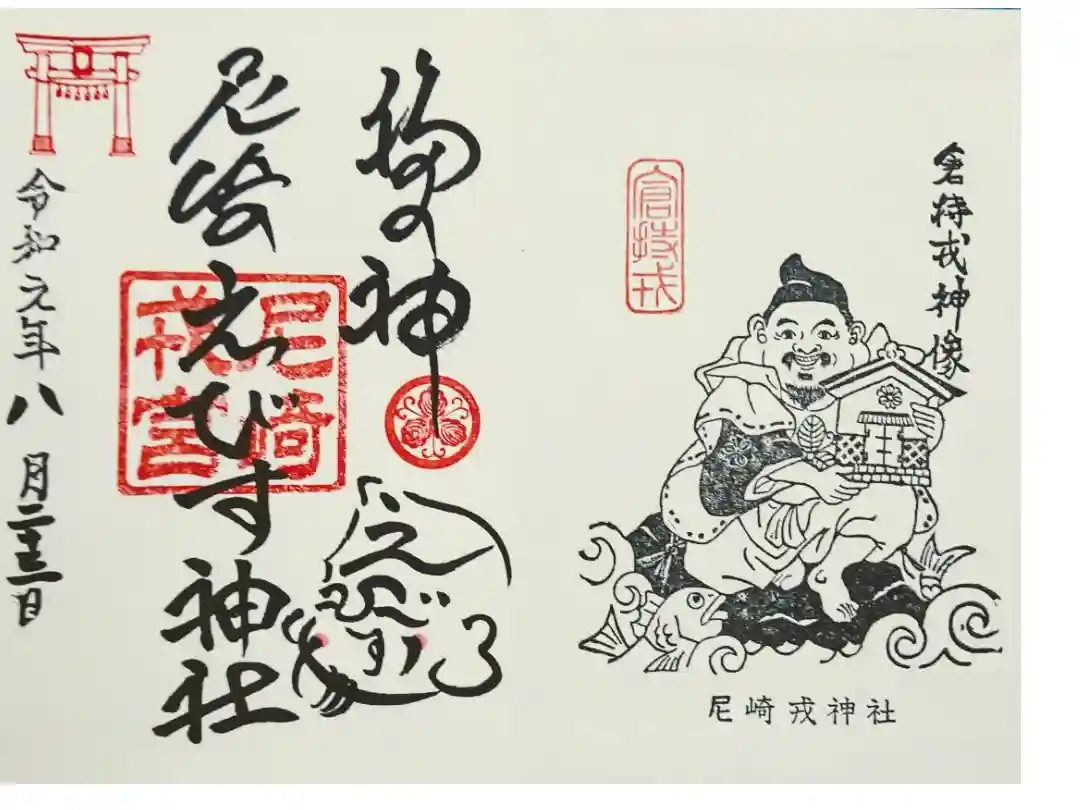 倉持戎神像
倉持戎
尼崎戎神社
福の神
えびす
尼崎えびす神社
尼崎
戎宮
令和元年八月二十三日